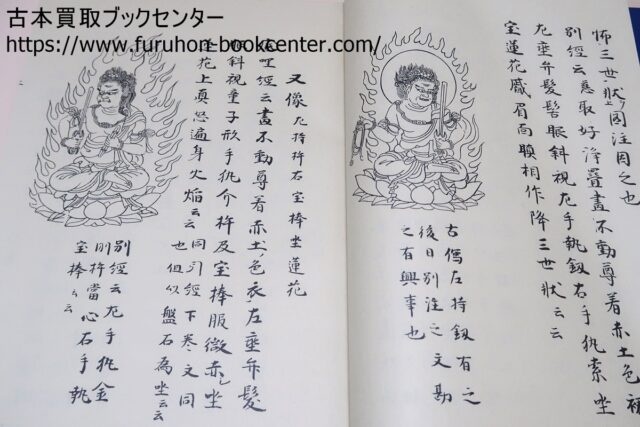 古本買取ブックセンター
https://www.furuhon-bookcenter.com/
師三世状圖注因之也
別經云意取好淨置畫不動尊着赤土色裙
左垂弁髮髻眼斜視左手執釼右手執索坐
宝蓮花瞋眉面瞋相作降三世状云云
古像左持釼有之
後日別注之文勘
之有興事也
又像左持杵右宝棒坐蓮花
經云畫不動尊着赤土色衣左垂弁髮
眼斜視童子形手執杵及宝棒服微赤坐
蓮花上瞋怒遍身火焔云云
同經下巻文同
也但以盤石為坐云云
別經云左手執金
剛杵當心右手執
宝棒云云